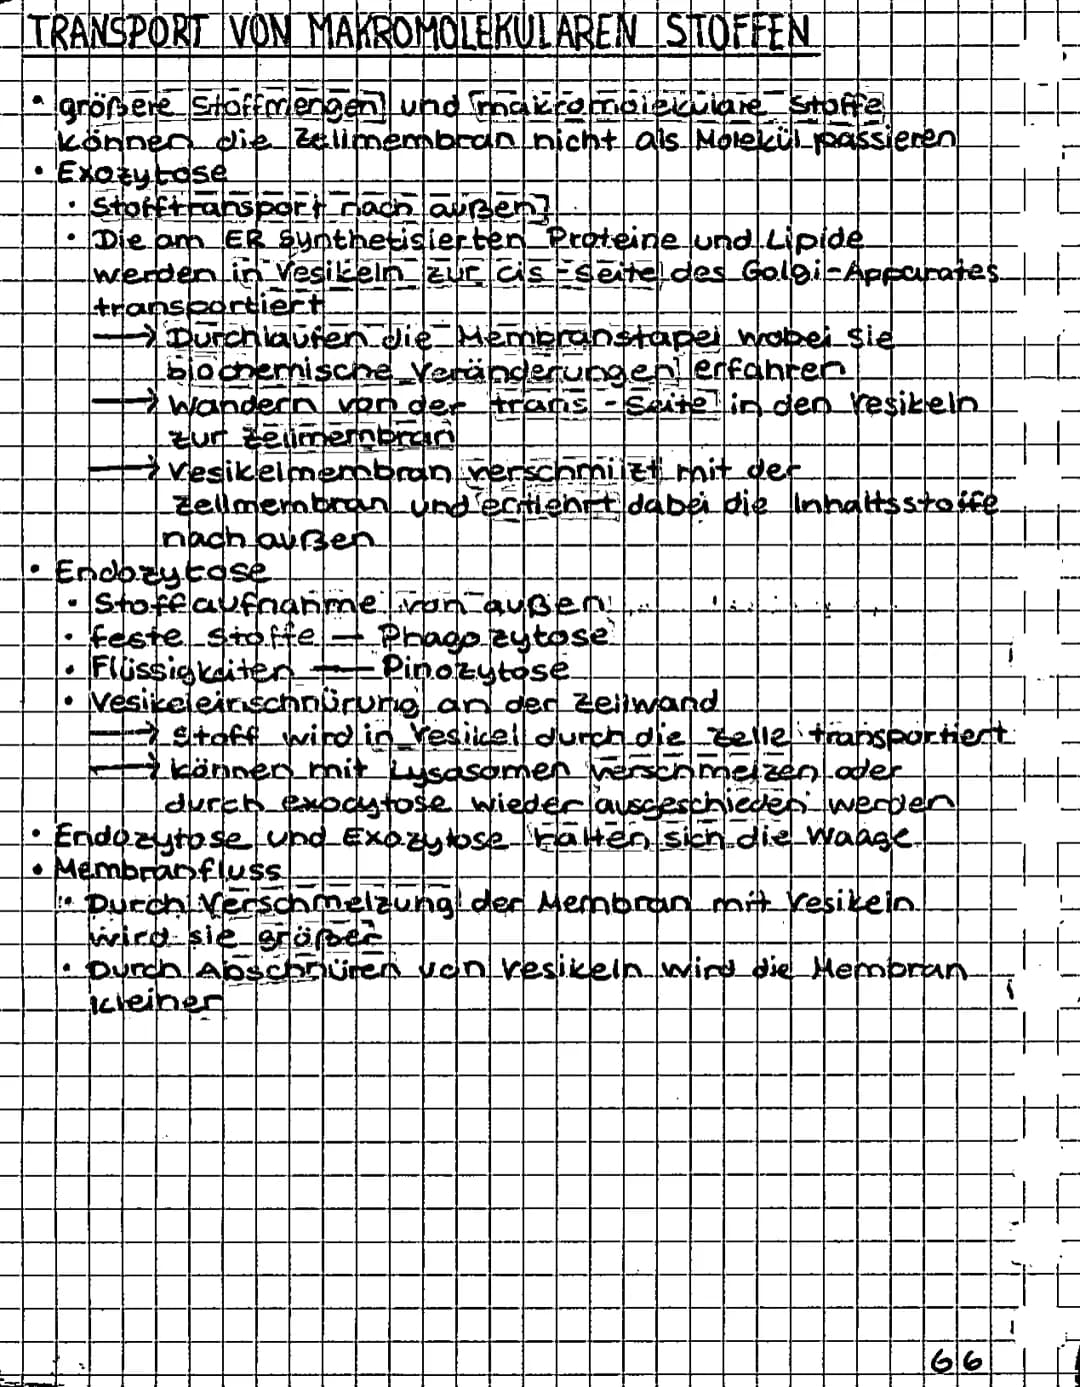 TRANSPORT VON MAKROMOLEKULAREN STOFFEN
• größere Stoffmengen und makromolekulare Stoffe
können die Zellmembran nicht als Molekül passieren
• Exozytose
• Stofftransport nach außen
• Die am ER synthetisierten Proteine und Lipide
werden in Vesikeln zur cis-Seite des Golgi-Apparates
transportiert
→ Durchlaufen die Membranstapel wobei sie
biochemische Veränderungen erfahren
→ Wandern von der trans-Seite in den Vesikeln
zur Zellmembran
→ Vesikelmembran verschmilzt mit der
Zellmembran und entleert dabei die Inhaltsstoffe
nach außen
• Endozytose
• Stoffaufnahme von außen
• feste Stoffe — Phagozytose
• Flüssigkeiten — Pinozytose
• Vesikeleinschnürung an der Zellwand
→ Stoff wird in Vesikel durch die Zelle transportiert
→ können mit Lysosomen verschmelzen oder
durch exocytose wieder ausgeschieden werden
• Endozytose und Exozytose halten sich die Waage
• Membranfluss
• Durch Verschmelzung der Membran mit Vesikeln
wird sie größer
• Durch Abschnüren von Vesikeln wird die Membran
kleiner
66